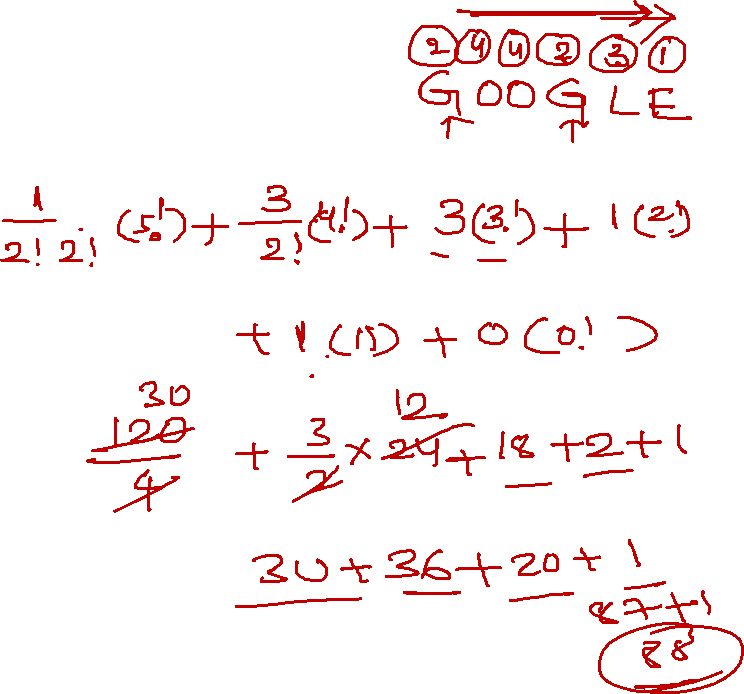 2 4 4 2 3 1
GOOGLE
1/2! 2! (5!) + 3/2! (4!) + 3(3!) + 1(2!)
+ 1.(1!) + 0(0!)
30 12
120/4 + 3/2 × 24 + 18 + 2 + 1
30 + 36 + 20 + 1
87+1
88